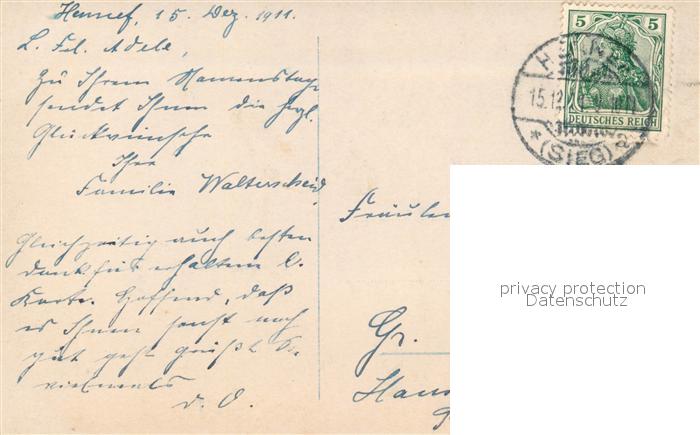 Hennef, 15. Dez. 1911.
L. Frl. Adele,
Zu Ihrem Namenstage
sendet Ihnen die hzgl.
Glückwünsche
Ihre
Familie Walterscheid
Gleichzeitig auch besten
Dank für erhaltene l.
Karte. Hoffend, daß
es Ihnen sonst noch
gut geht grüßt S.
vielmals
d. O.
5 5
DEUTSCHES REICH
HENNEF
15.12.
* (SIEG) a
Fräulein
Gr.
Hau
privacy protection
Datenschutz